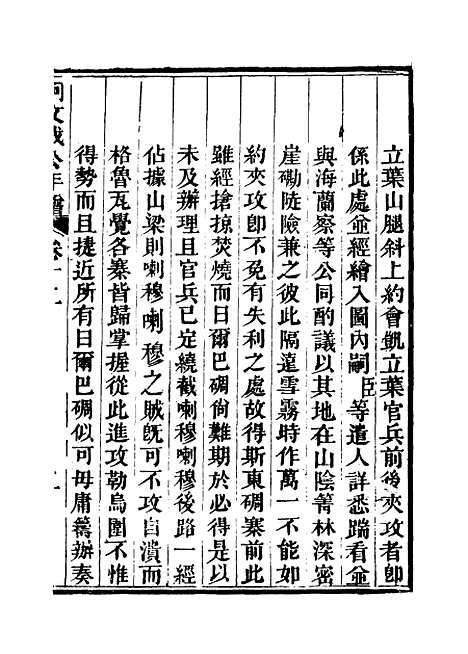 立葉山腿斜上約會䞘立葉官兵前後夾攻者卽
係此處並經繪入圖內嗣臣等遣人詳悉踹看並
與海蘭察等公同酌議以其地在山陰箐林深密
崖磡陡險兼之彼此隔遠雪霧時作萬一不能如
約夾攻卽不免有失利之處故得斯東碉寨前此
雖經搶掠焚燒而日爾巴碉尙難期於必得是以
未及辦理且官兵已定繞截喇穆喇穆後路一經
佔據山梁則喇穆喇穆之賊旣可不攻自潰而
格魯瓦覺各寨皆歸掌握從此進攻勒烏圍不惟
得勢而且捷近所有日爾巴碉似可毋庸籌辦奏
阿文成公年譜 卷十二